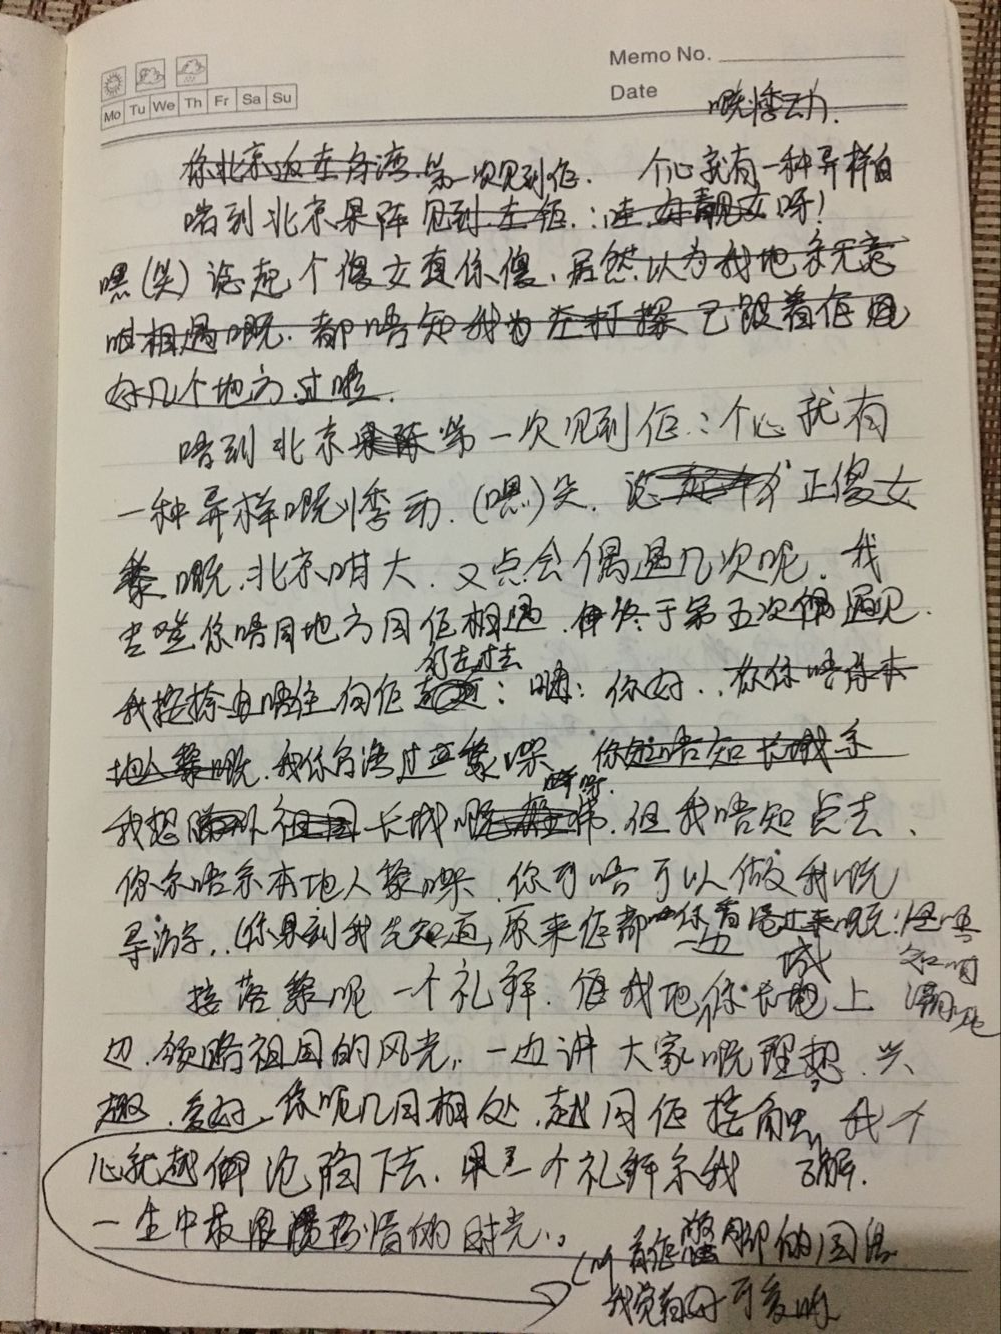 Memo No.
Date
Mo Tu We Th Fr Sa Su
嘅悸动.
你北京返左台湾.第一次见到佢. 个心就有一种异样
啱到北京果阵见到左佢:哇好靓女呀!
嘿(笑)谂起个傻女真系傻、居然以为我地系无意
咁相遇嘅.都唔知我为左打探已跟着佢
好几个地方过啦.
啱到北京果阵第一次见到佢:个心就有
一种异样嘅悸动.(嘿)笑.谂 正傻女
嚟嘅.北京咁大.又点会偶遇几次呢.我
去唔同地方同佢相遇.终于第五次遇见.
行左过去
我按捺唔住向佢 : 嗨:你好..你系唔系本
地人嚟嘅.我系台湾过嚟㗎 你知唔知长城系
我想 祖国长城嘅 .但我唔知点去、
你系唔系本地人嚟㗎.你可唔可以做我嘅
导游.(系果刻我先知道,原来佢都系 一边 嘅:
接落嚟呢一个礼拜.佢我地系长城上
边.领略祖国的风光,一边讲大家嘅理想、兴
趣、爱好.系呢几日相处.越同佢接触 了解.我个
心就越沦陷下去.果一个礼拜系我
一生中最浪漫 的时光..
我觉得好可爱